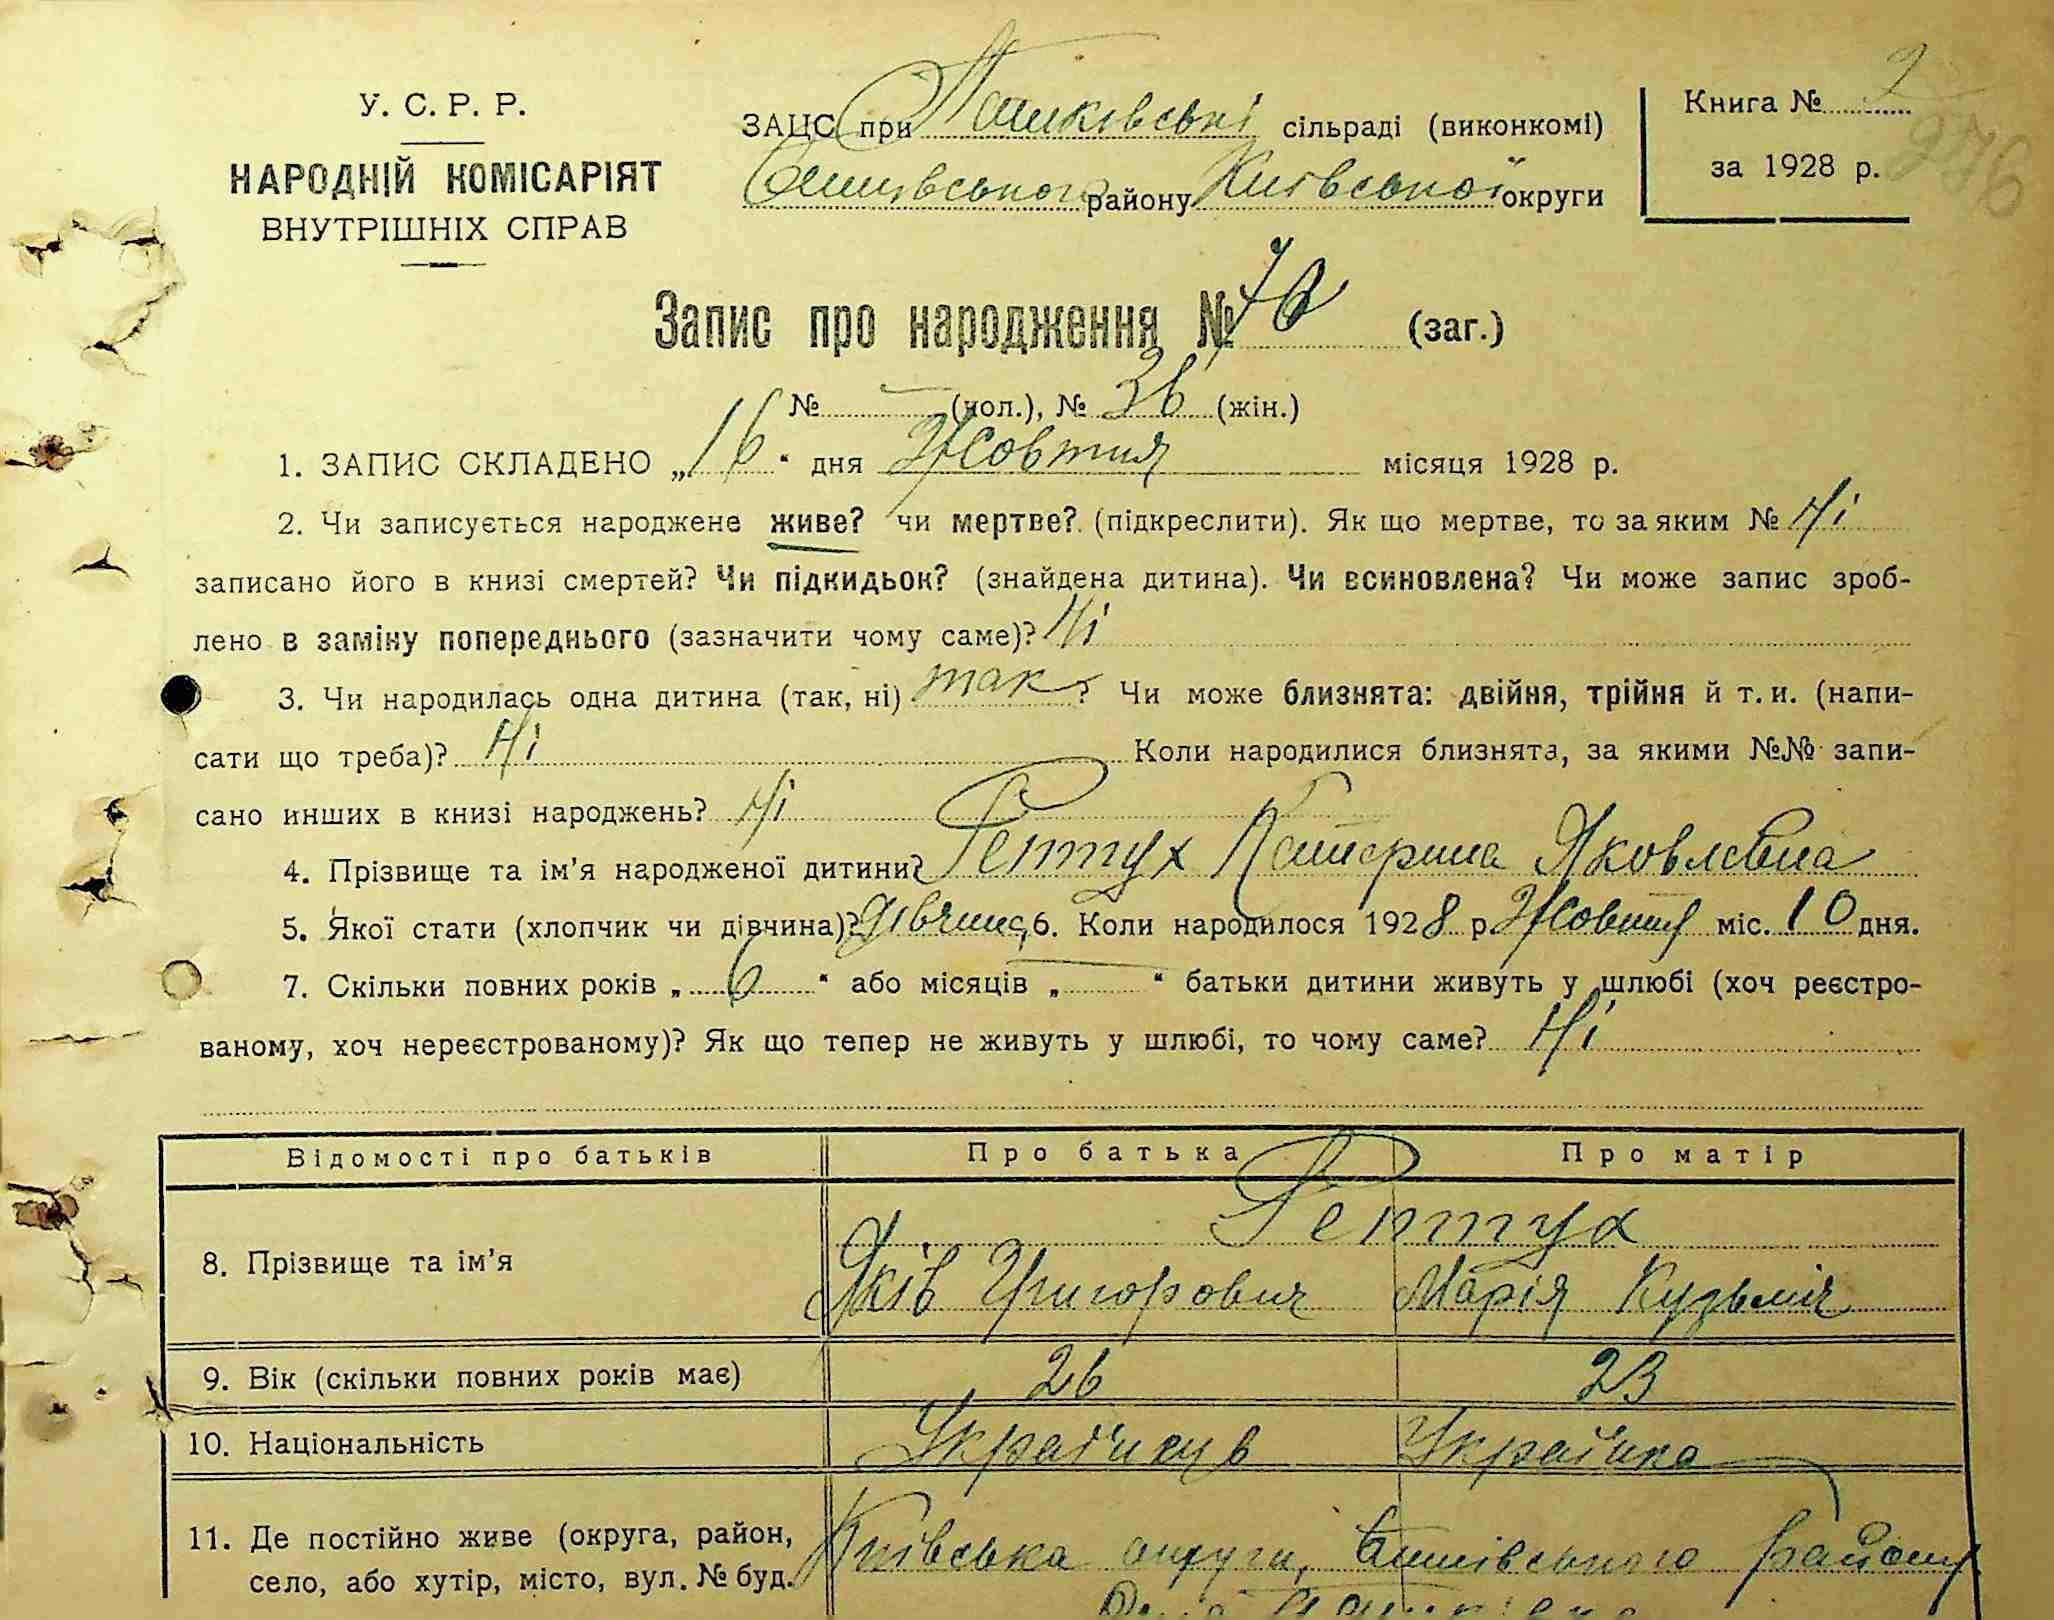 У. С. Р. Р.
НАРОДНІЙ КОМІСАРІЯТ
ВНУТРІШНІХ СПРАВ
ЗАЦС при Пашківські сільраді (виконкомі)
району Київської округи
Книга № 2
за 1928 р.
276
Запис про народження № 76 (заг.)
№ — (чол.), № 36 (жін.)
1. ЗАПИС СКЛАДЕНО „16“ дня Жовтня місяця 1928 р.
2. Чи записується народжене живе? чи мертве? (підкреслити). Як що мертве, то за яким № Ні
записано його в книзі смертей? Чи підкидьок? (знайдена дитина). Чи всиновлена? Чи може запис зроб-
лено в заміну попереднього (зазначити чому саме)? Ні
3. Чи народилась одна дитина (так, ні) так? Чи може близнята: двійня, трійня й т. и. (напи-
сати що треба)? Ні Коли народилися близнята, за якими №№ запи-
сано инших в книзі народжень? Ні
4. Прізвище та ім’я народженої дитини? Рептух Катерина Яковлевна
5. Якої стати (хлопчик чи дівчина)? дівчина 6. Коли народилося 1928 р. Жовтня міс. 10 дня.
7. Скільки повних років „6“ або місяців „ “ батьки дитини живуть у шлюбі (хоч реєстро-
ваному, хоч нереєстрованому)? Як що тепер не живуть у шлюбі, то чому саме? Ні
Відомості про батьків Про батька Про матір
Рептух
8. Прізвище та ім’я Яків Григорович Марія Кузьмін
9. Вік (скільки повних років має) 26 23
10. Національність Українець Українка
11. Де постійно живе (округа, район, Київська округи, району
село, або хутір, місто, вул. № буд.